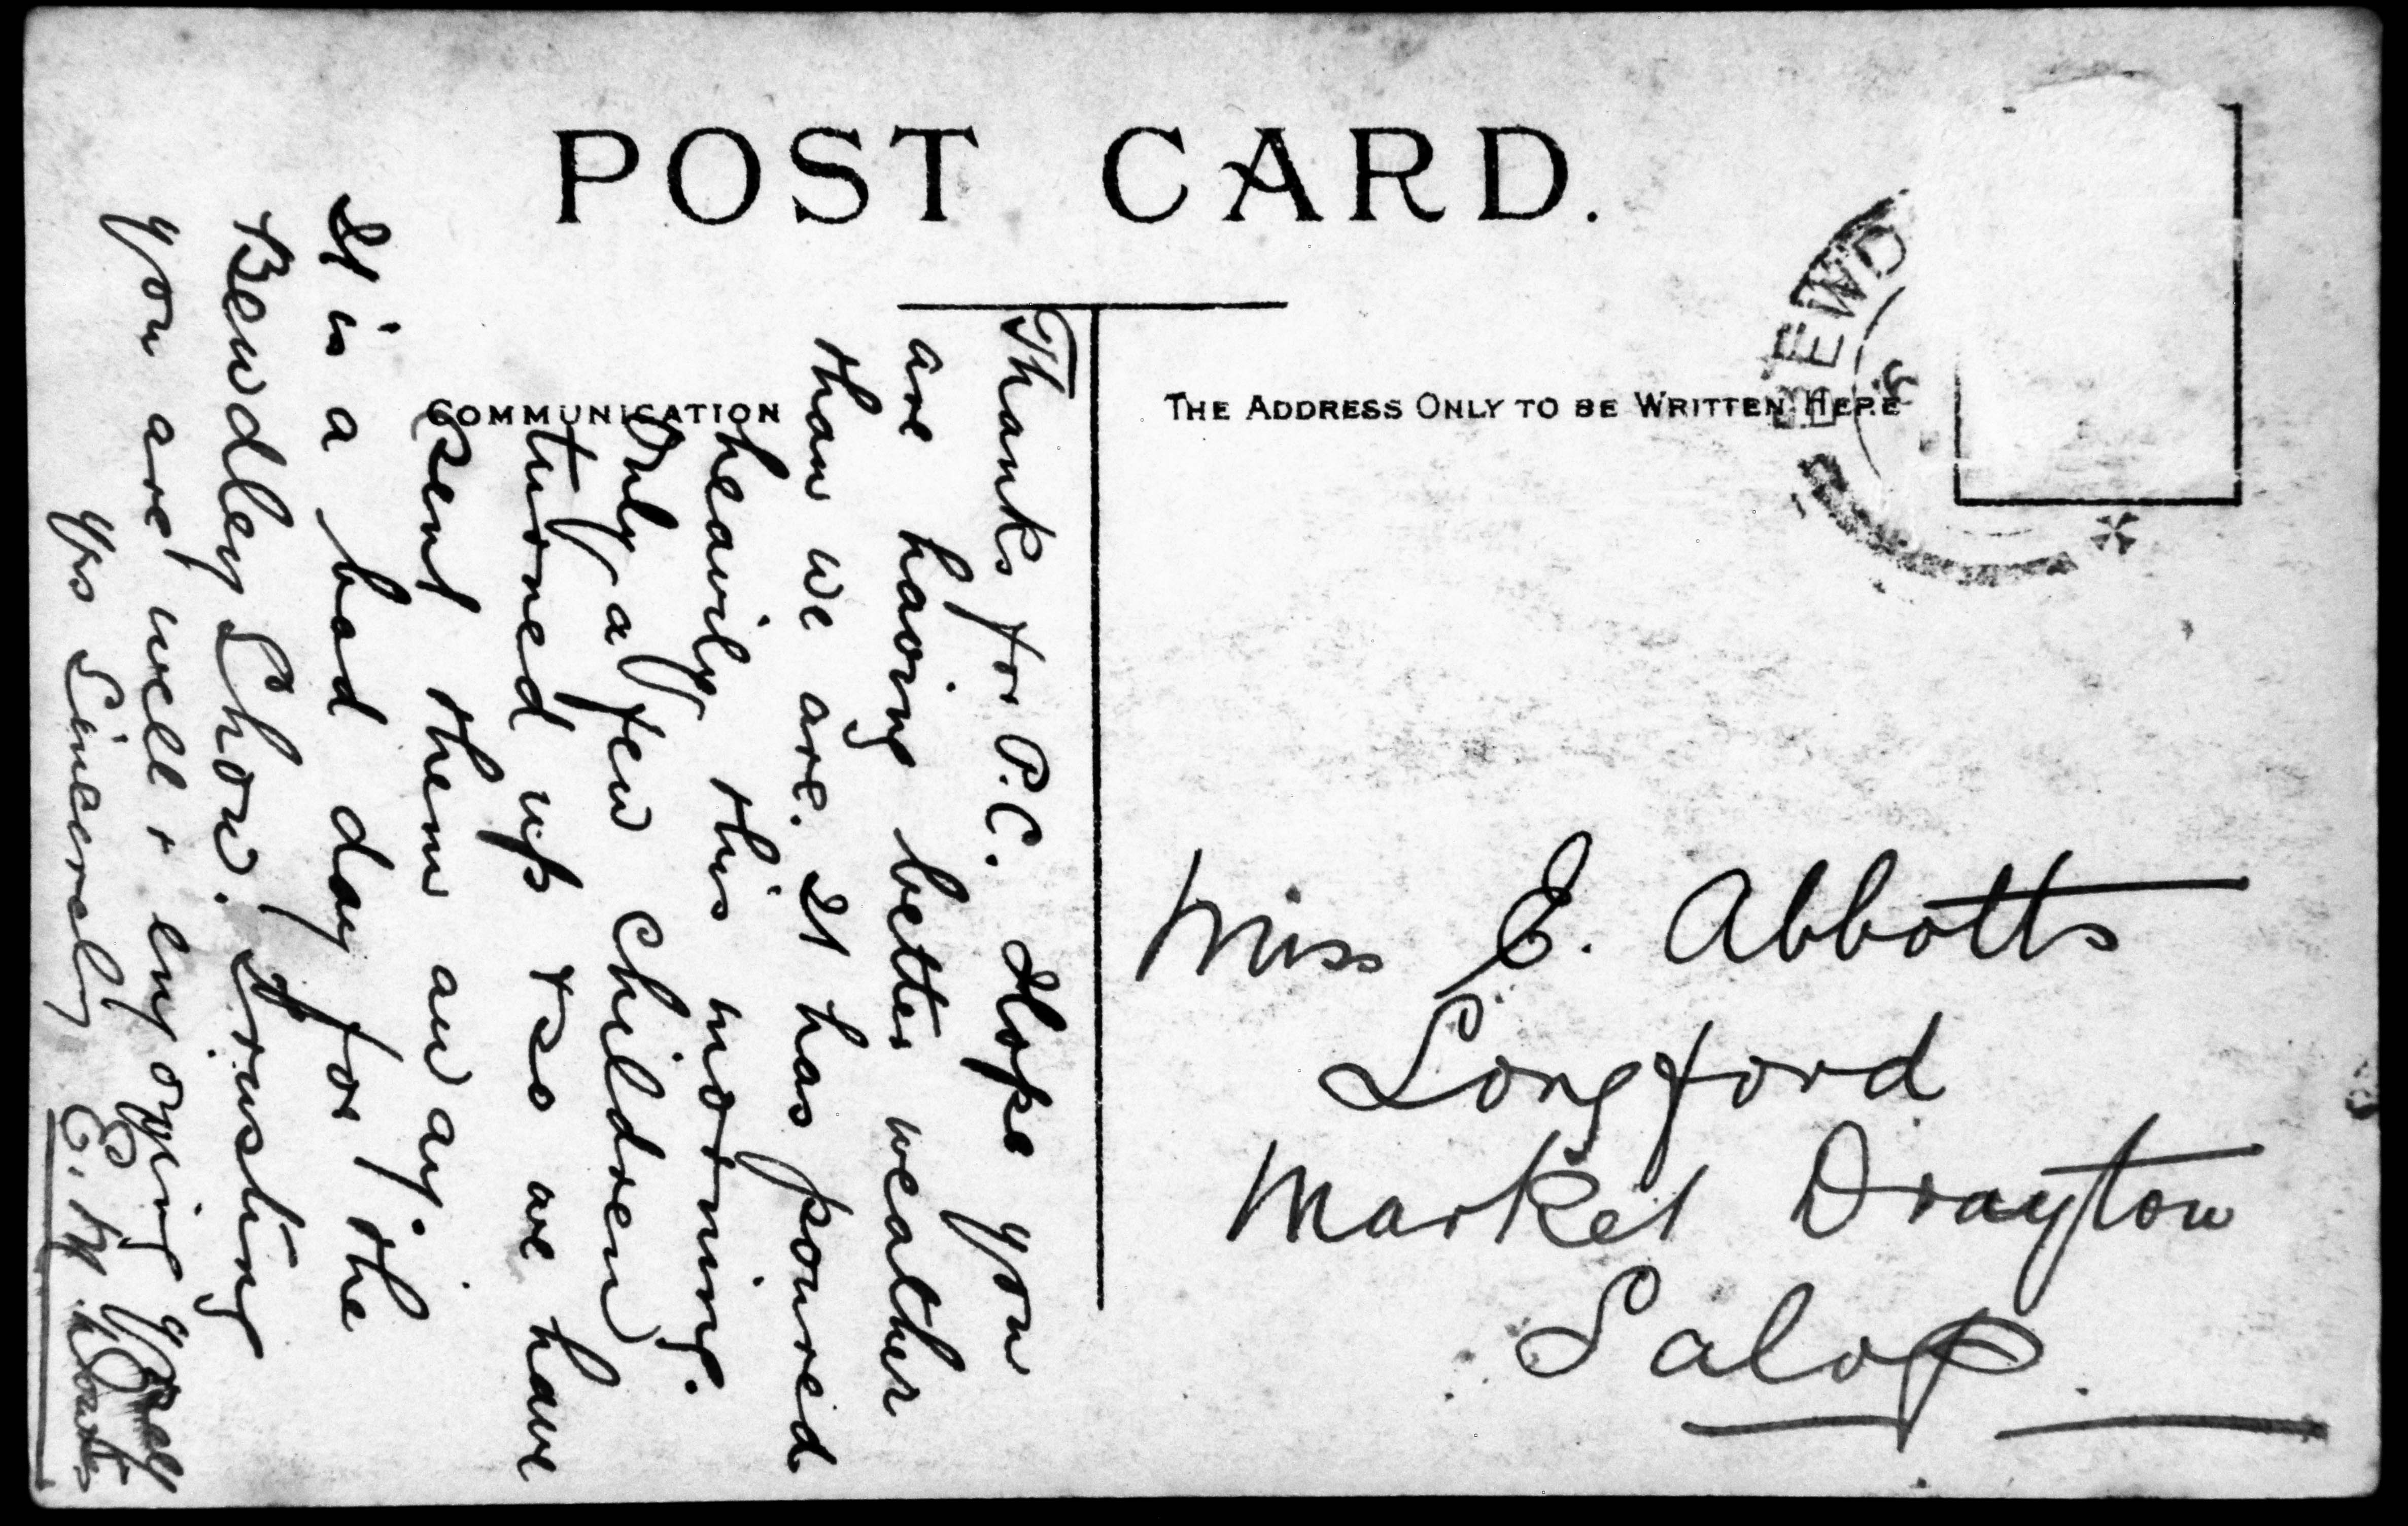 POST CARD.
COMMUNICATION
THE ADDRESS ONLY TO BE WRITTEN HERE
BEWD
Thanks for P.C. Hope you
are having better weather
than we are. It has poured
heavily this morning.
Only a few children
turned up & so we have
sent them away.
It is a bad day for the
Bewdley Show. Trusting
you are well & enjoying
Yrs Sincerely E. M.
Miss E. Abbotts
Longford
Market Drayton
Salop.